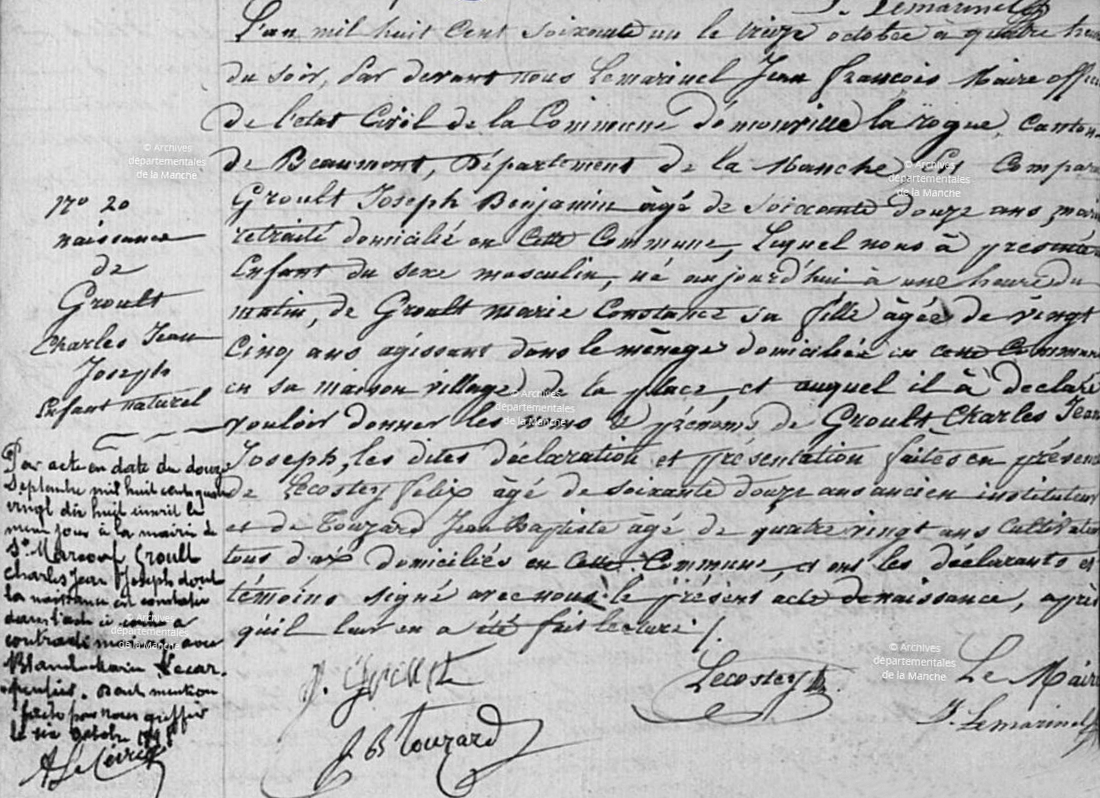 J. Lemarinel
L'an mil huit Cent Soixante un le treize octobre à quatre heu
du soir, Par devant nous Lemarinel Jean françois Maire offici
de l'etat Civil de la Commune d'omonville la rogue, Canton
de Beaumont, Département de la Manche Est Compar
Groult Joseph Benjamin âgé de soixante douze ans, marin
retraité domicilié en Cette Commune, Lequel nous à présenté
Enfant du sexe masculin, né aujourd'hui à une heure du
matin, de Groult marie Constance sa fille âgée de vingt
Cinq ans agissant dans le ménage domiciliée en cette Commune
en sa maison village de la place, et auquel il à declaré
vouloir donner les noms et prénoms de Groult Charles Jean
Joseph, les dites declaration et présentation faites en présen
de Lecostey félix âgé de soixante douze ans ancien instituteur
et de Touzard Jean Baptiste âgé de quatre vingt ans Cultivate
tous deux domiciliés en Cette Commune, et ont les déclarants et
témoins signé avec nous le présent acte de naissance, après
qu'il leur en a été fait lecture /.
N° 20
naissance
de
Groult
Charles Jean
Joseph
Enfant naturel
Par acte en date du douze
Septembre mil huit cent quatre
vingt dix huit inscrit le
même jour à la mairie de
St Marcouf Groult
Charles Jean Joseph dont
la naissance est constatée
dans l'acte ci contre a
contracté mariage avec
Blanche Marie Lecar
pentier. Dont mention
faite par nous greffier
le six Octobre 1898
J. Groult
Lecostey
Le Maire
J. B Touzard
J. Lemarinel
© Archives
départementales
de la Manche
© Archives
départementales
de la Manche
© Archives
départementales
de la Manche
© Archives
départementales
de la Manche
© Archives
départementales
de la Manche